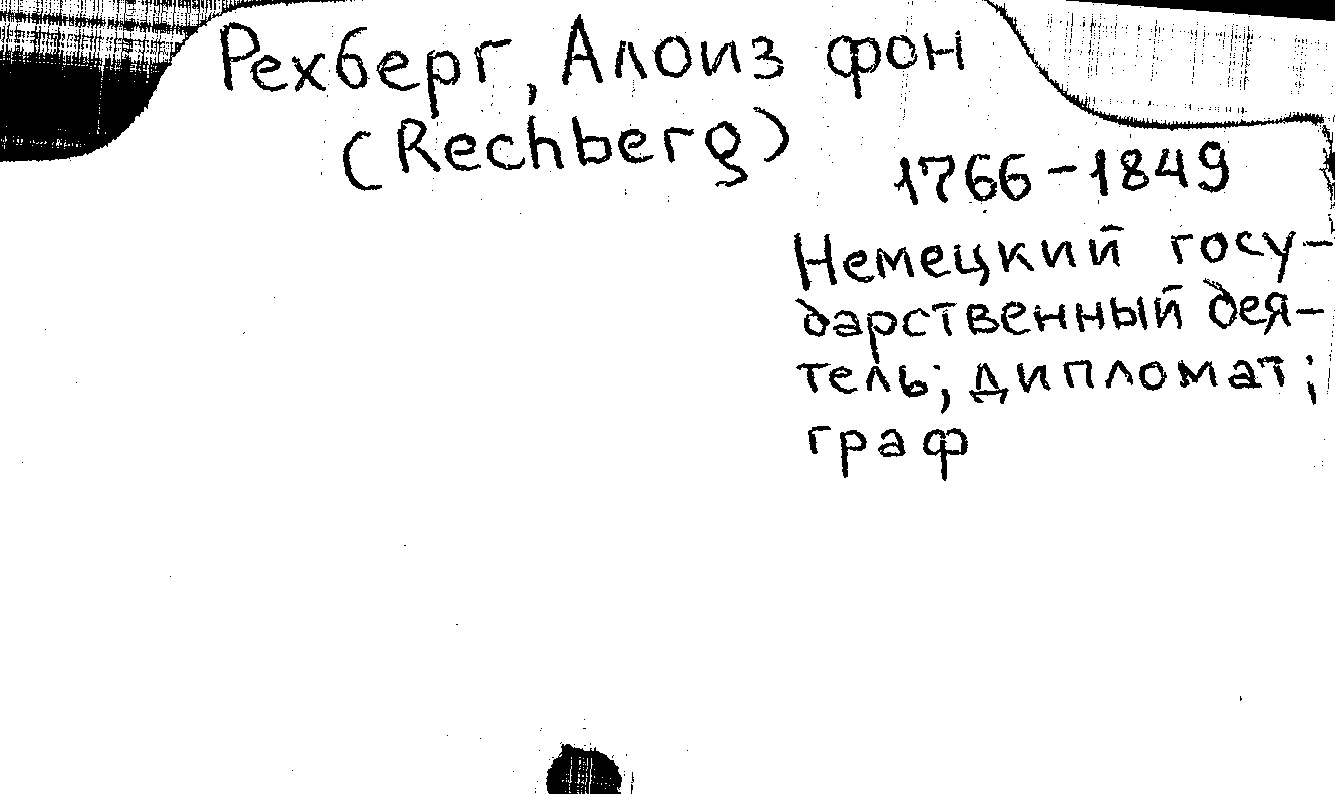 Рехберг, Алоиз фон
(Rechberg)
1766-1849
Немецкий госу-
дарственный дея-
тель; дипломат;
граф